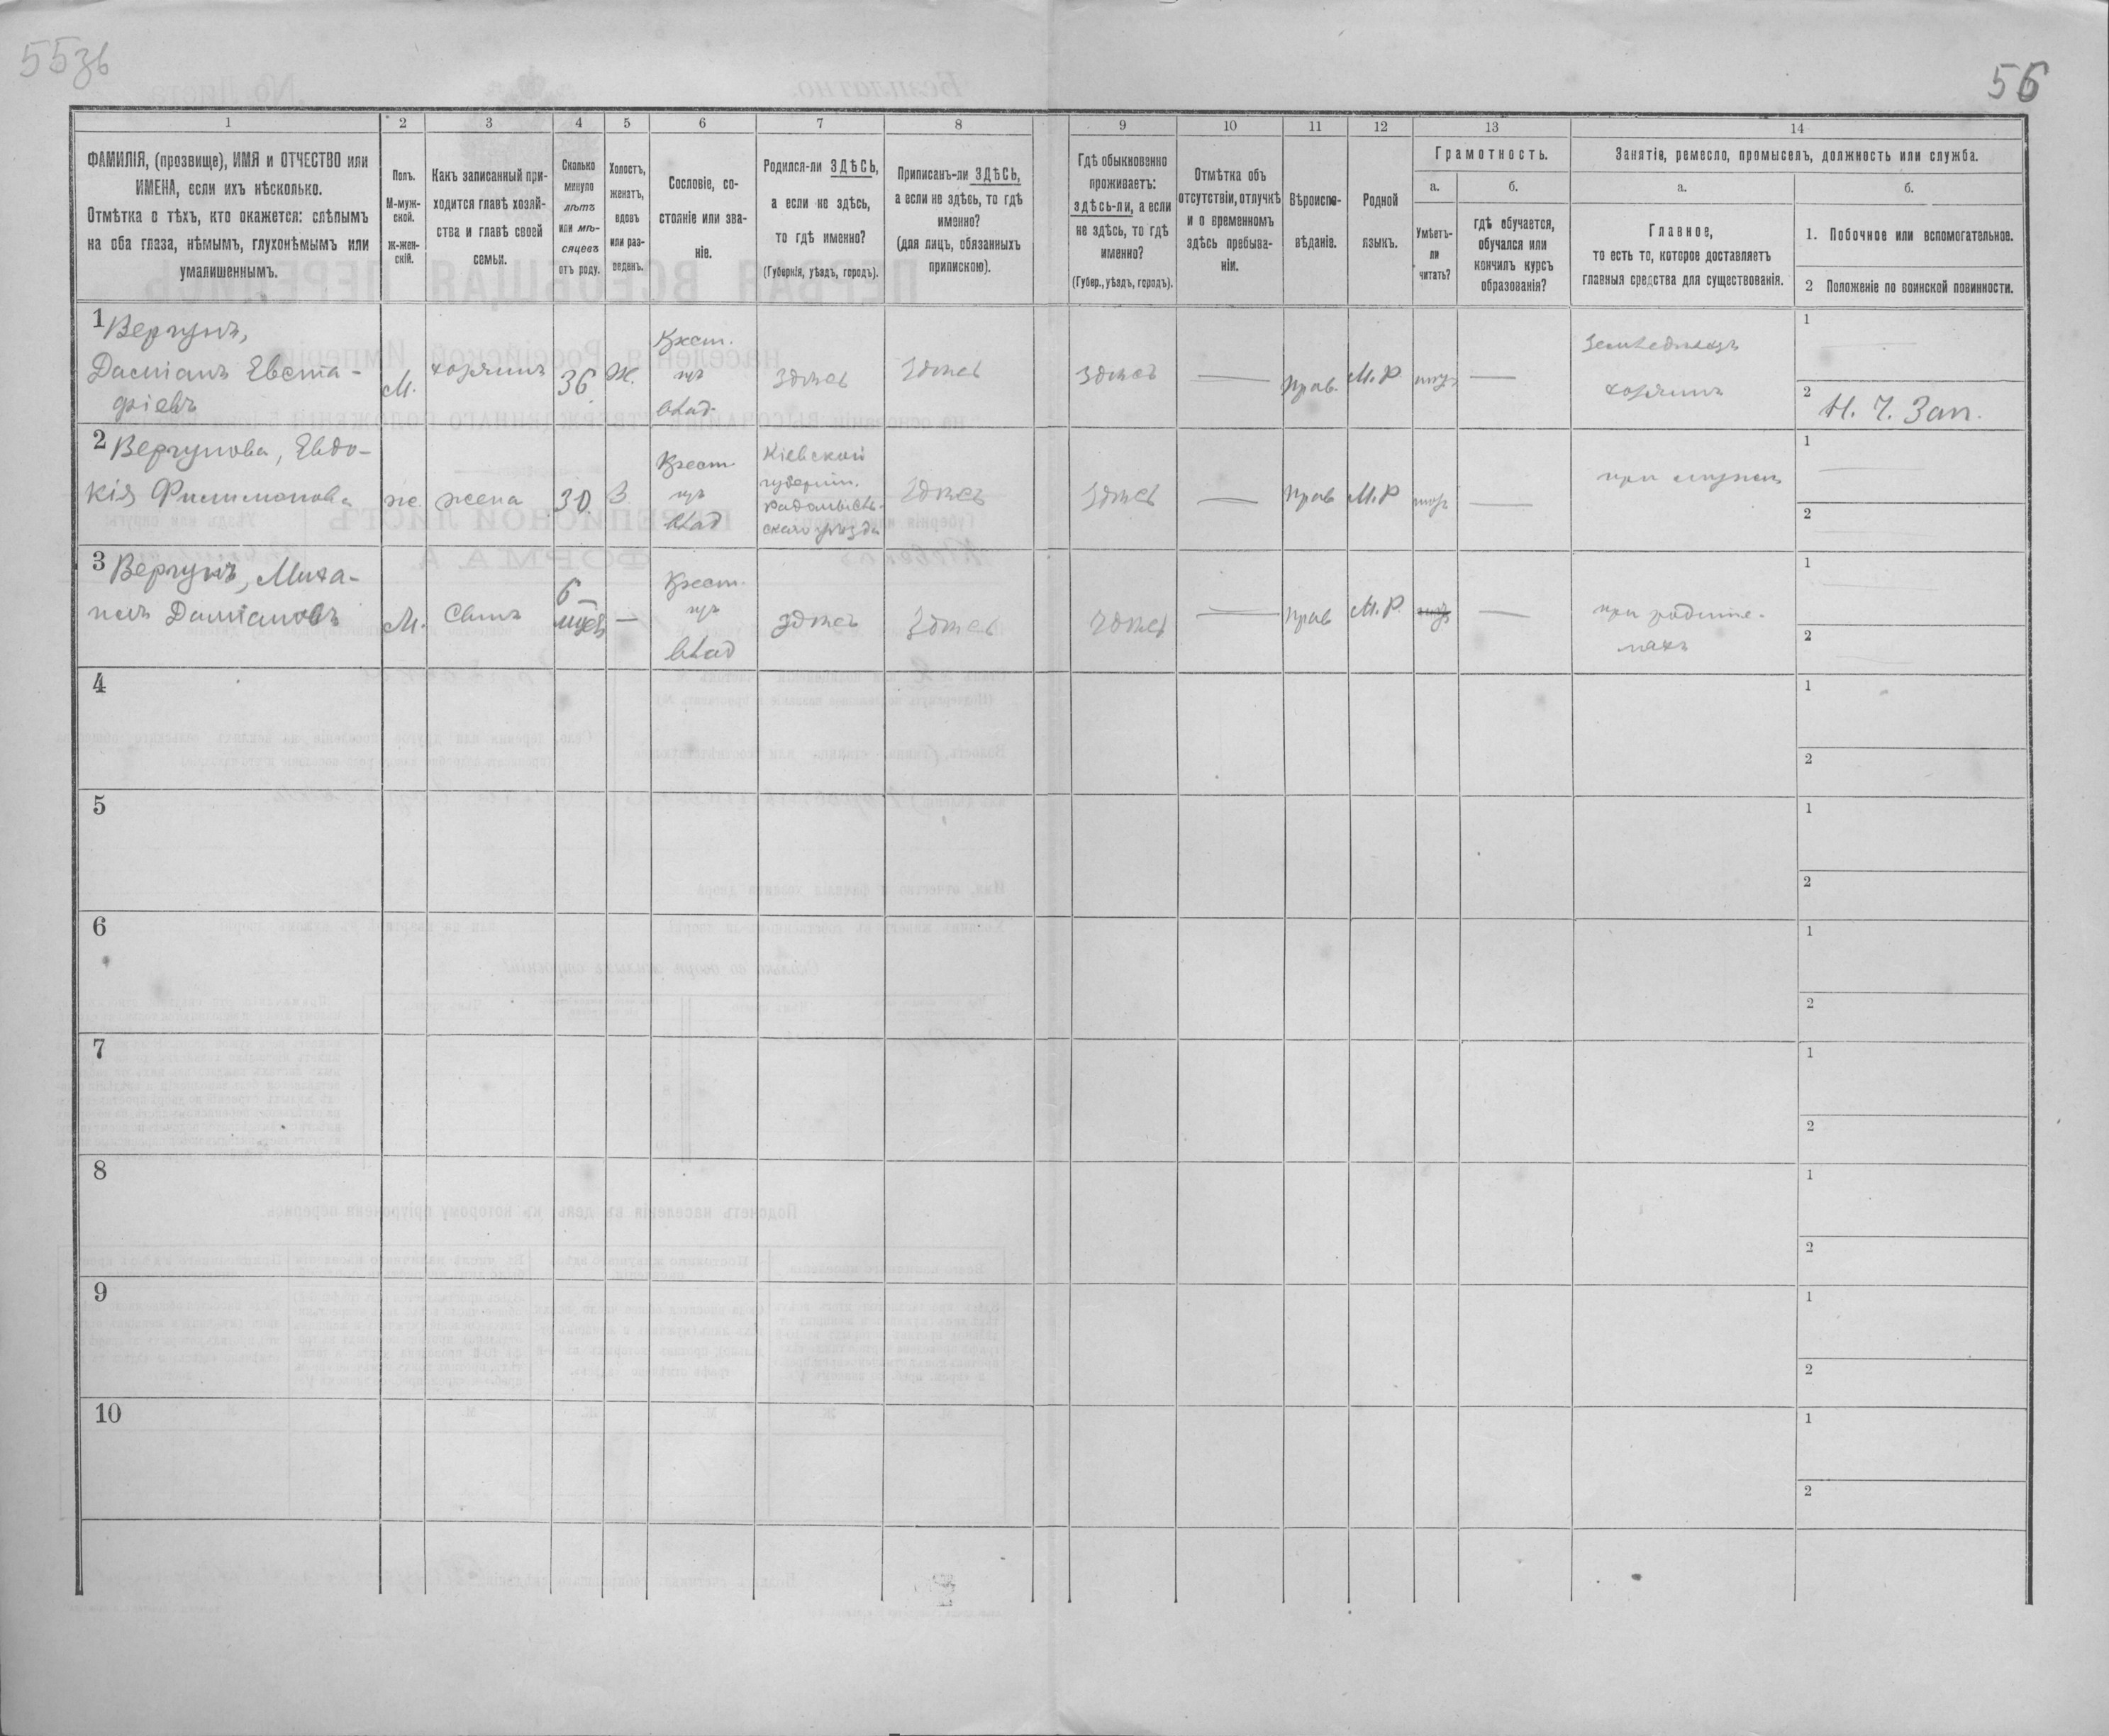 55зв
56
1
2
3
4
5
6
7
8
9
10
11
12
13
14
ФАМИЛІЯ, (прозвище), ИМЯ и ОТЧЕСТВО или
ИМЕНА, если ихъ нѣсколько.
Отмѣтка о тѣхъ, кто окажется: слѣпымъ
на оба глаза, нѣмымъ, глухонѣмымъ или
умалишеннымъ.
Полъ.
М-муж-
ской.
ж-жен-
скій.
Какъ записанный при-
ходится главѣ хозяй-
ства и главѣ своей
семьи.
Сколько
минуло
лѣтъ
или мѣ-
сяцевъ
отъ роду.
Холостъ,
женатъ,
вдовъ
или раз-
веденъ.
Сословіе, со-
стояніе или зва-
ніе.
Родился-ли ЗДѢСЬ,
а если не здѣсь,
то гдѣ именно?
(Губернія, уѣздъ, городъ).
Приписанъ-ли ЗДѢСЬ,
а если не здѣсь, то гдѣ
именно?
(для лицъ, обязанныхъ
припискою).
Гдѣ обыкновенно
проживаетъ:
здѣсь-ли, а если
не здѣсь, то гдѣ
именно?
(Губер., уѣздъ, городъ).
Отмѣтка объ
отсутствіи, отлучкѣ
и о временномъ
здѣсь пребыва-
ніи.
Вѣроиспо-
вѣданіе.
Родной
языкъ.
Грамотность.
а.
б.
Умѣетъ-
ли
читать?
гдѣ обучается,
обучался или
кончилъ курсъ
образованія?
Занятіе, ремесло, промыселъ, должность или служба.
а.
б.
Главное,
то есть то, которое доставляетъ
главныя средства для существованія.
1. Побочное или вспомогательное.
2 Положеніе по воинской повинности.
1 Вергунъ,
Даміанъ Евста-
фіевъ
М.
хозяинъ
36
Ж.
Крест.
изъ
влад.
здѣсь
здѣсь
здѣсь
—
прав.
М.Р.
—
Земледѣлецъ
хозяинъ
1
2
Н. Ч. Зап.
2 Вергунова, Евдо-
кія Филимонова
ж.
жена
30.
З.
Крест.
изъ
влад
Кіевской
губерніи.
Радомысль-
скаго уѣзда
здѣсь
здѣсь
—
прав
М.Р
—
при мужѣ
1
2
3 Вергунъ, Миха-
илъ Даміановъ
М.
Сынъ
6
мѣс
—
Крест.
изъ
влад
здѣсь
здѣсь
здѣсь
—
прав
М.Р.
—
при родите-
ляхъ
1
2
4
1
2
5
1
2
6
1
2
7
1
2
8
1
2
9
1
2
10
1
2